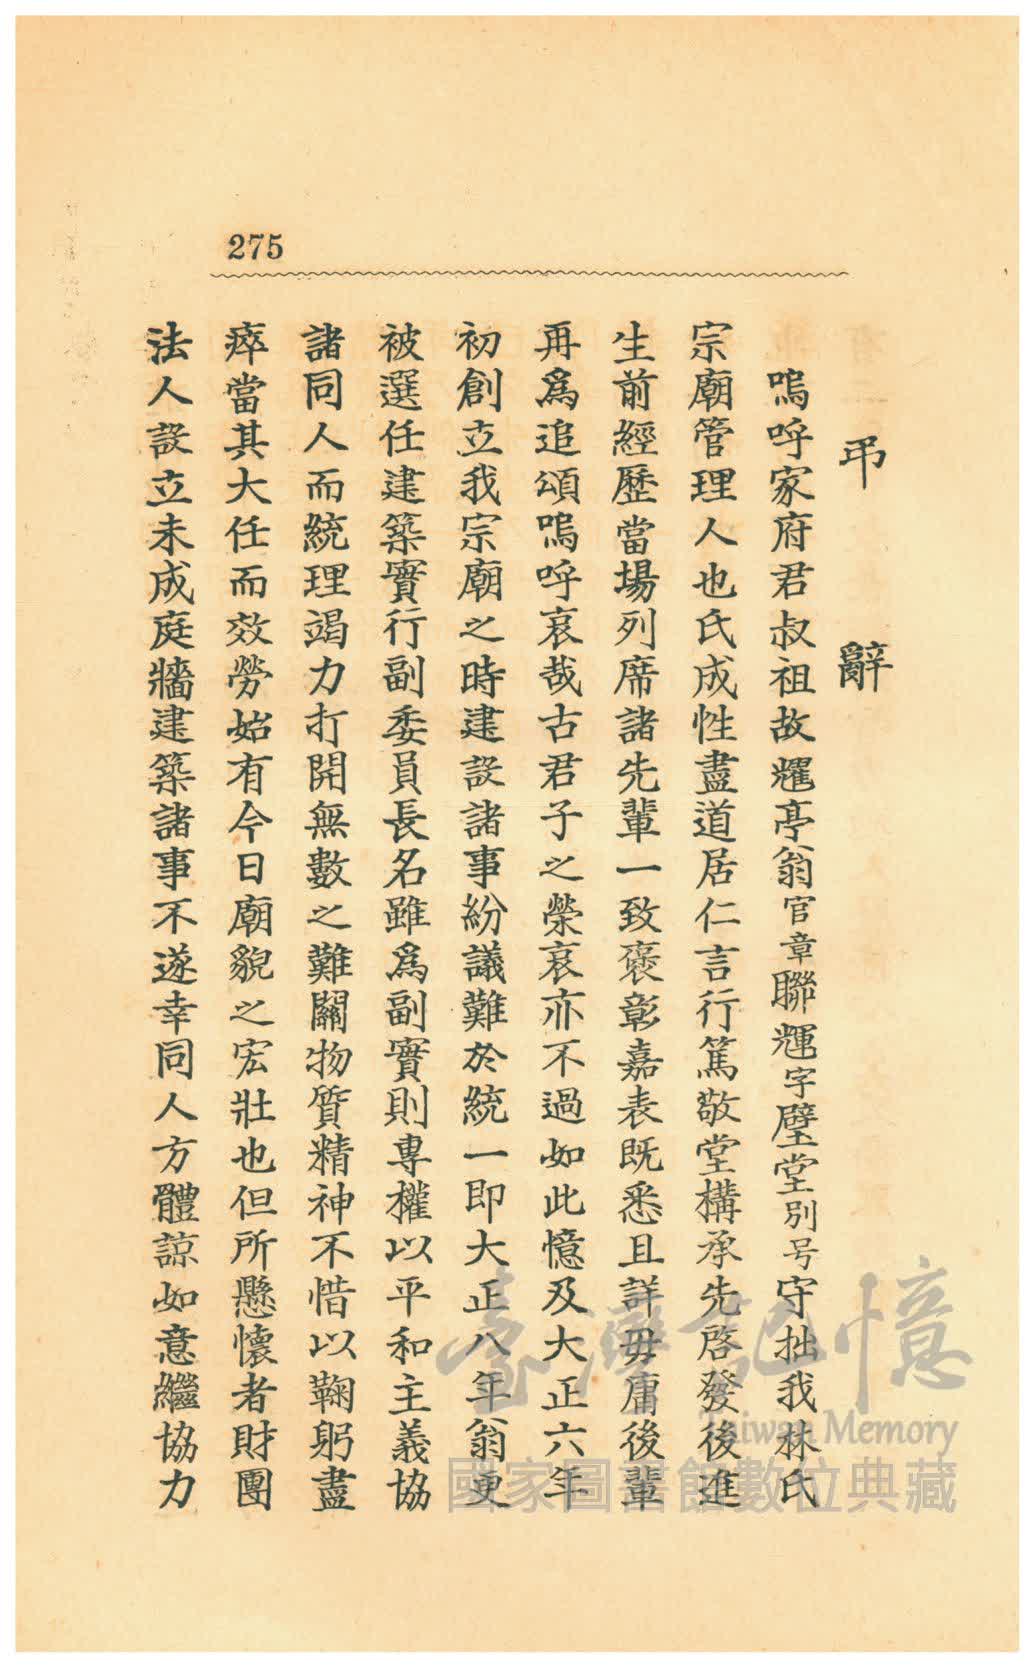 275
弔辭
嗚呼家府君叔祖故耀亭翁官章聯輝字璧堂別号守拙我林氏
宗廟管理人也氏成性盡道居仁言行篤敬堂構承先啓發後進
生前經歷當場列席諸先輩一致褒彰嘉表既悉且詳毋庸後輩
再爲追頌嗚呼哀哉古君子之榮哀亦不過如此憶及大正六年
初創立我宗廟之時建設諸事紛議難於統一即大正八年翁更
被選任建築實行副委員長名雖爲副實則專權以平和主義協
諸同人而統理竭力打開無數之難關物質精神不惜以鞠躬盡
瘁當其大任而效勞始有今日廟貌之宏壯也但所懸懷者財團
法人設立未成庭牆建築諸事不遂幸同人方體諒如意繼協力
臺灣記憶
Taiwan Memory
國家圖書館數位典藏